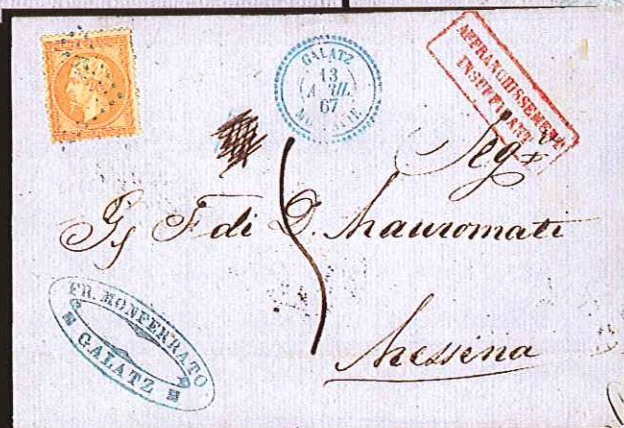 GALATZ
13
67
AFFRANCHISSEMENT
INSUFFISANT
Sigri
F. di D. Mauromati
Messina
FR. MONFERRATO
GALATZ